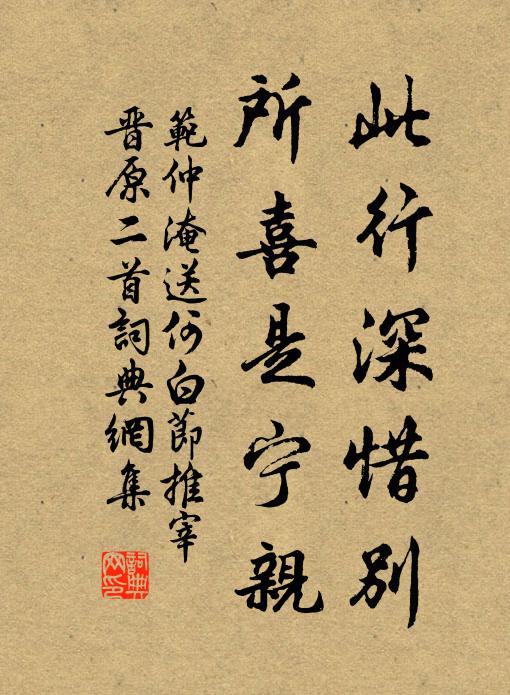 此行深惜别
所喜是宁親
範仲淹送何白節推宰
晋原二首詞典網集
詞典網印